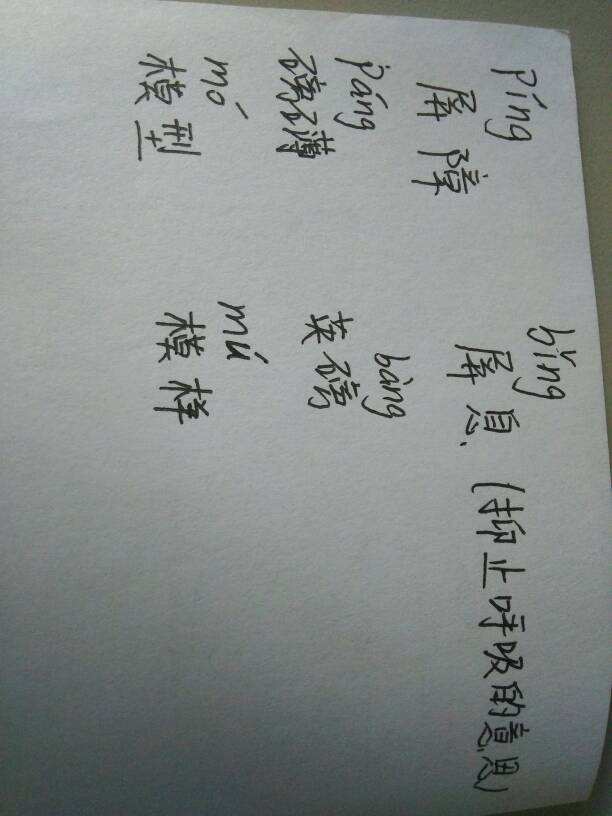 píng bǐng
屏障 屏息 (抑止呼吸的意思)
páng bàng
磅礴 英磅
mó mú
模型 模样